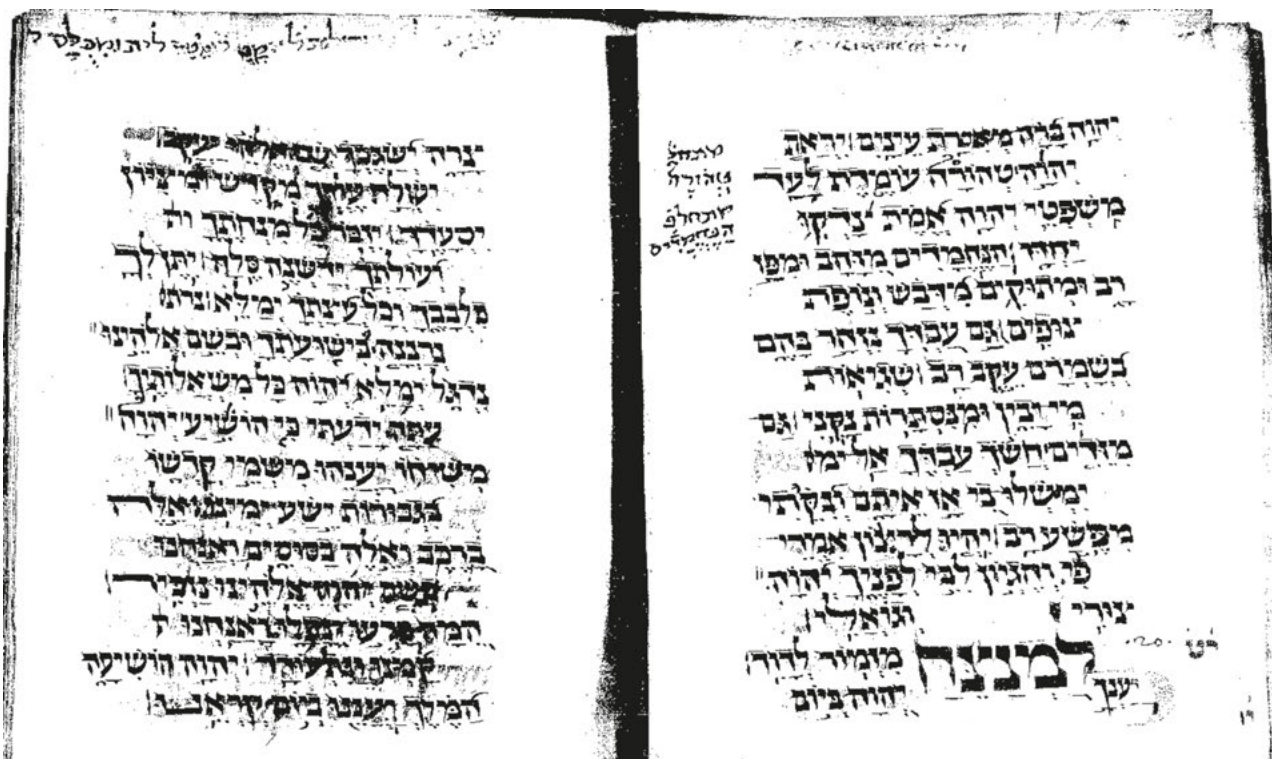 יהוה ברה מאירת עינים יראת
יהוה טהורה עומדת לעד
משפטי יהוה אמת יצדקו
יחדו הנחמדים מזהב ומפז
רב ומתוקים מדבש ונופת
צופים גם עבדך נזהר בהם
בשמרם עקב רב שגיאות
מי יבין ומנסתרות נקני גם
מזדים חשך עבדך אל ימ
ימשלו בי אז איתם ונקתי
מפשע רב יהיו לרצון אמרי
פי והגיון לבי לפניך יהוה
צורי וגואלי
למנצח מזמור לדוד
יענך יהוה ביום
20
טהורה
הנחמדים
צרה ישגבך שם אלהי יעקב
ישלח עזרך מקדש ומציון
יסעדך יזכר כל מנחתך
ועולתך ידשנה סלה יתן לך
כלבבך וכל עצתך ימלא נרנ
נרננה בישועתך ובשם אלהינו
נדגל ימלא יהוה כל משאלותיך
עתה ידעתי כי הושיע יהוה
משיחו יענהו משמי קדשו
בגבורות ישע ימינו אלה
ברכב ואלה בסוסים ואנחנו
בשם יהוה אלהינו נזכיר
המה כרעו ונפלו ואנחנו ק
קמנו ונתעודד יהוה הושיעה
המלך יעננו ביום קראנו